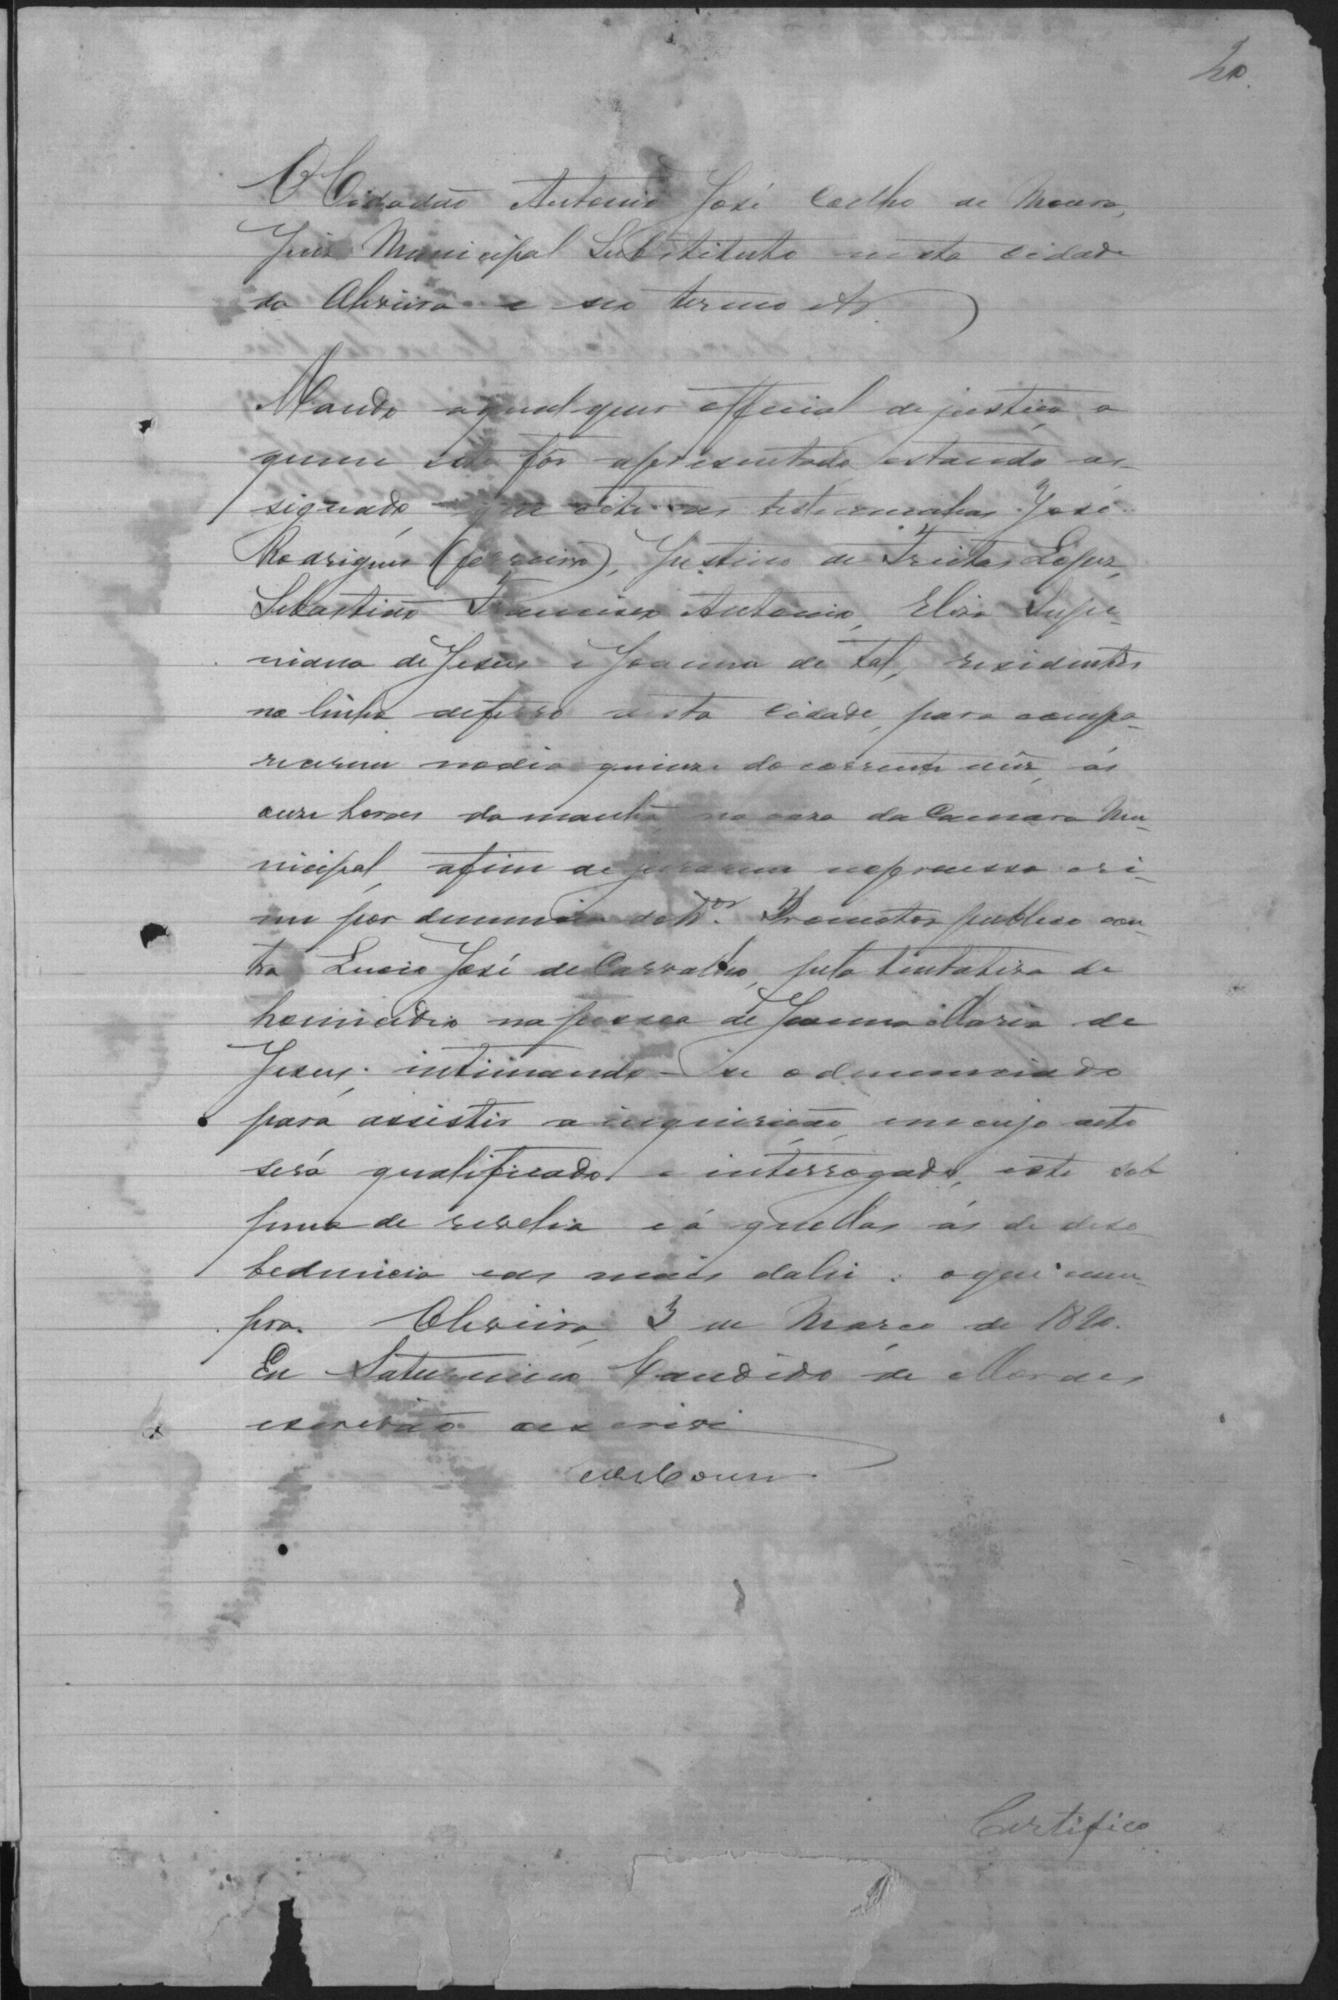 20
O Cidadão Antonio José Coelho de Moura,
Juiz Municipal Substituto nesta cidade
da Oliveira e seo termo
Mando a qualquer official de justiça a
quem este fôr apresentado estando as-
signado que cite as testemunhas José
Rodrigues (ferreiro), Justino de Freitas Lopes,
Sebastião Francisco Antonio, Elisa
de Jesus e Joanna de tal, residentes
na desta cidade, para compa-
recerem no dia quinze do corrente mêz, ás
onze horas da manhã, na casa da Camara Mu-
nicipal, afim de jurarem no processo cri-
me por denuncia do Dor. Promotor publico con-
tra Lucio José de Carvalho, pela tentativa de
homicidio na pessoa de Joanna Maria de
Jesus; intimando-se o denunciado
para assistir a inquirição, em cujo acto
será qualificado e interrogado, este sob
pena de revelia e á quellas ás de deso
bediencia e as mais da lei: o que cum-
pra. Oliveira, 3 de Março de 1890.
Eu Saturnino Candido de Moraes
escrivão o escrivi
Certifico